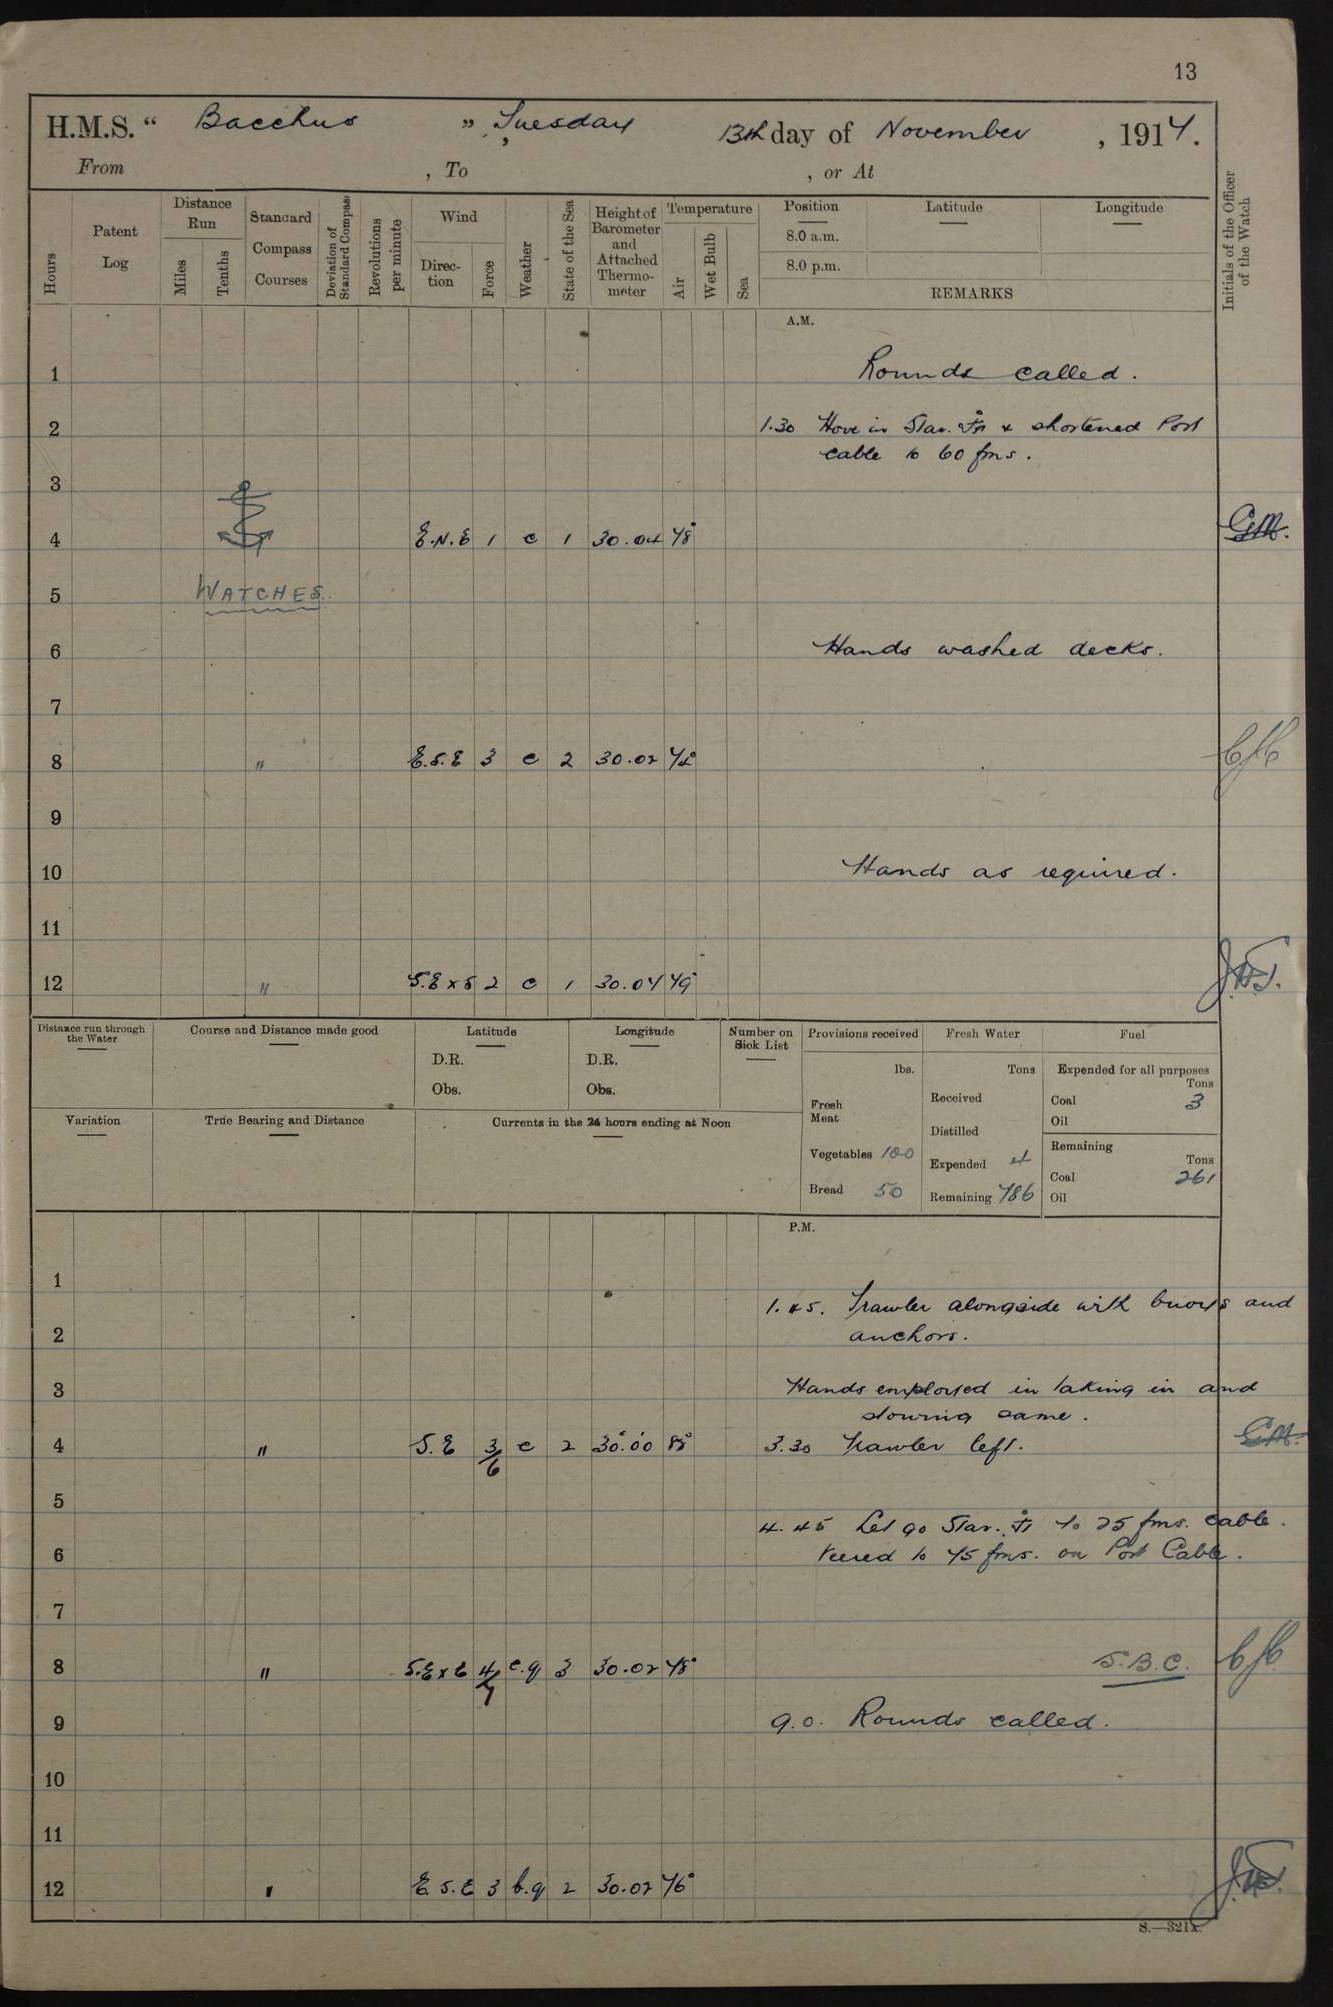 13
H.M.S. “ Bacchus ” , Tuesday 13th day of November , 1917.
From , To , or At
Hours
Patent Log
Distance Run
Miles
Tenths
Standard Compass Courses
Deviation of Standard Compass
Revolutions per minute
Wind
Direction
Force
Weather
State of the Sea
Height of Barometer and Attached Thermometer
Temperature
Air
Wet Bulb
Sea
Position Latitude Longitude
8.0 a.m.
8.0 p.m.
REMARKS
Initials of the Officer of the Watch
A.M.
1 Rounds called.
2 1.30 Hove in Star. & shortened Port
cable to 60 fms.
3
4 E.N.E 1 c 1 30.04 48° G.M.
5 WATCHES
6 Hands washed decks.
7
8 " E.S.E 3 c 2 30.02
9
10 Hands as required.
11
12 " S.E x S 2 c 1 30.04 49°
Distance run through the Water
Course and Distance made good
Latitude
D.R.
Obs.
Longitude
D.R.
Obs.
Number on Sick List
Provisions received
lbs.
Fresh Meat
Vegetables 100
Bread 50
Fresh Water
Tons
Received
Distilled
Expended 4
Remaining 786
Fuel
Expended for all purposes
Tons
Coal 3
Oil
Remaining
Tons
Coal 261
Oil
Variation
True Bearing and Distance
Currents in the 24 hours ending at Noon
P.M.
1 1.45. Trawler alongside with buoys and
2 anchors.
3 Hands employed in taking in and
stowing same.
4 " S.E 3/6 c 2 30.00 3.30 Trawler left. G.M.
5 4.45 Let go Star. to 25 fms. cable.
6 Veered to 45 fms. on Port Cable.
7
8 " S.E x E 4/7 c.q 3 30.02 48° S.B.C.
9 9.0. Rounds called.
10
11
12 " E.S.E 3 b.q 2 30.02 46°
S.—321A.